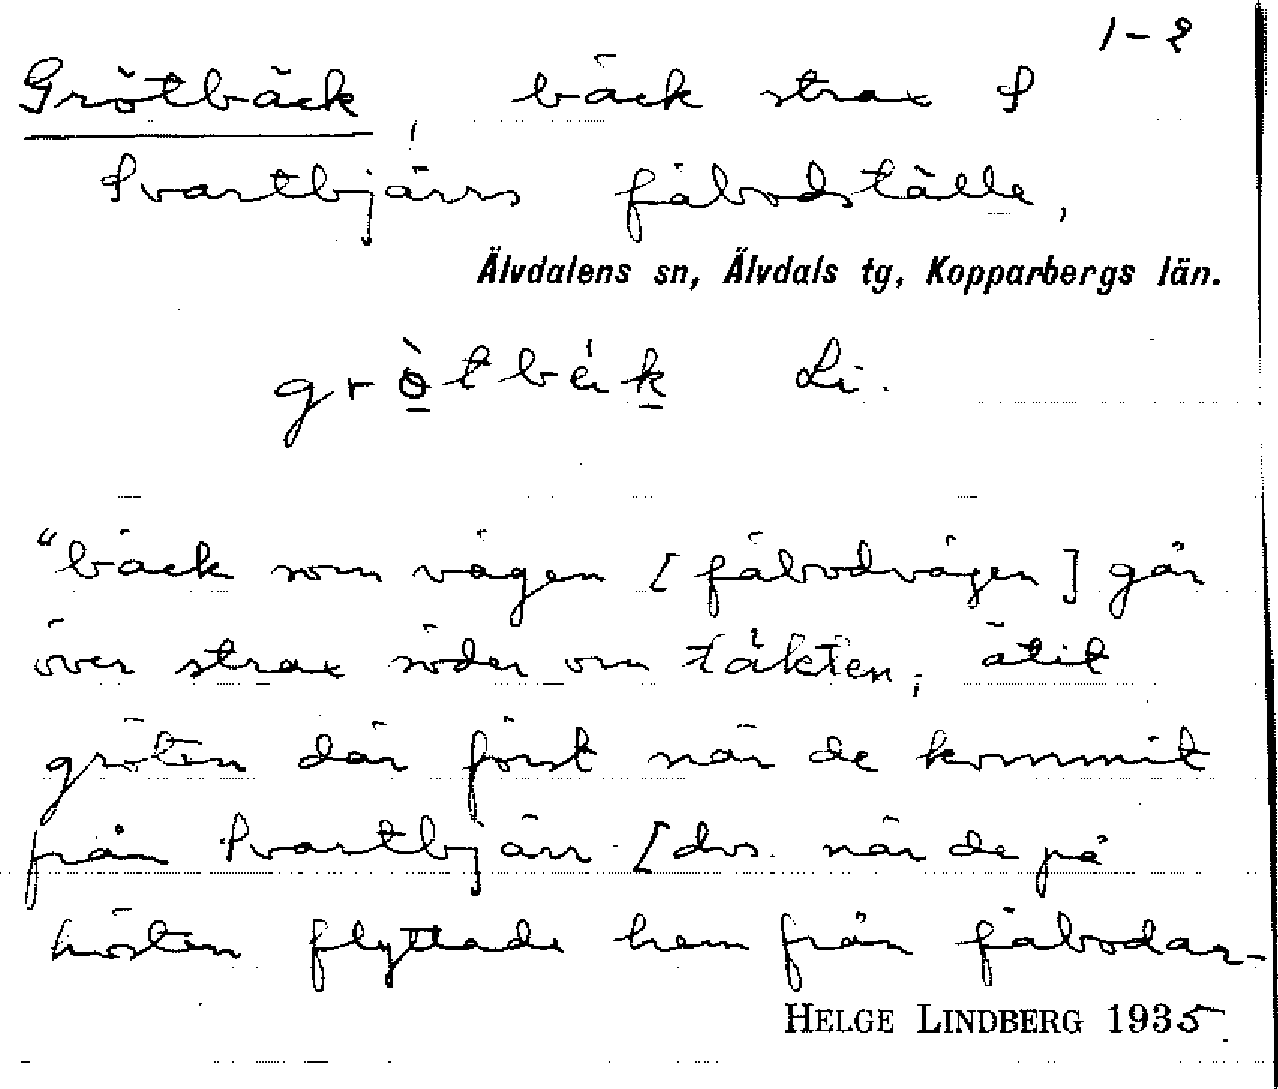 1-2
Grötbäck, bäck strax S
Svartbjärrs fäbodställe,
Älvdalens sn, Älvdals tg, Kopparbergs län.
grò̱tbäḵ Li.
"bäck som vägen [fäbodvägen] går
över strax söder om täkten, åtit
gröten där först när de kommit
från Svartbjärr [dvs. när de på
hösten flyttade hem från fäbodar-
HELGE LINDBERG 1935